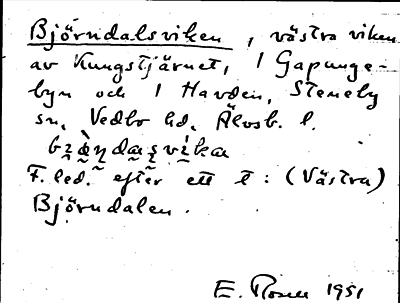 Björndalsviken, västra viken
av Kungstjärnet, 1 Gapunge-
byn och 1 Havden, Steneby
sn, Vedbo hd, Älvsb. l.
F. led. efter ett t : (Västra)
Björndalen.
E. Rosen 1951